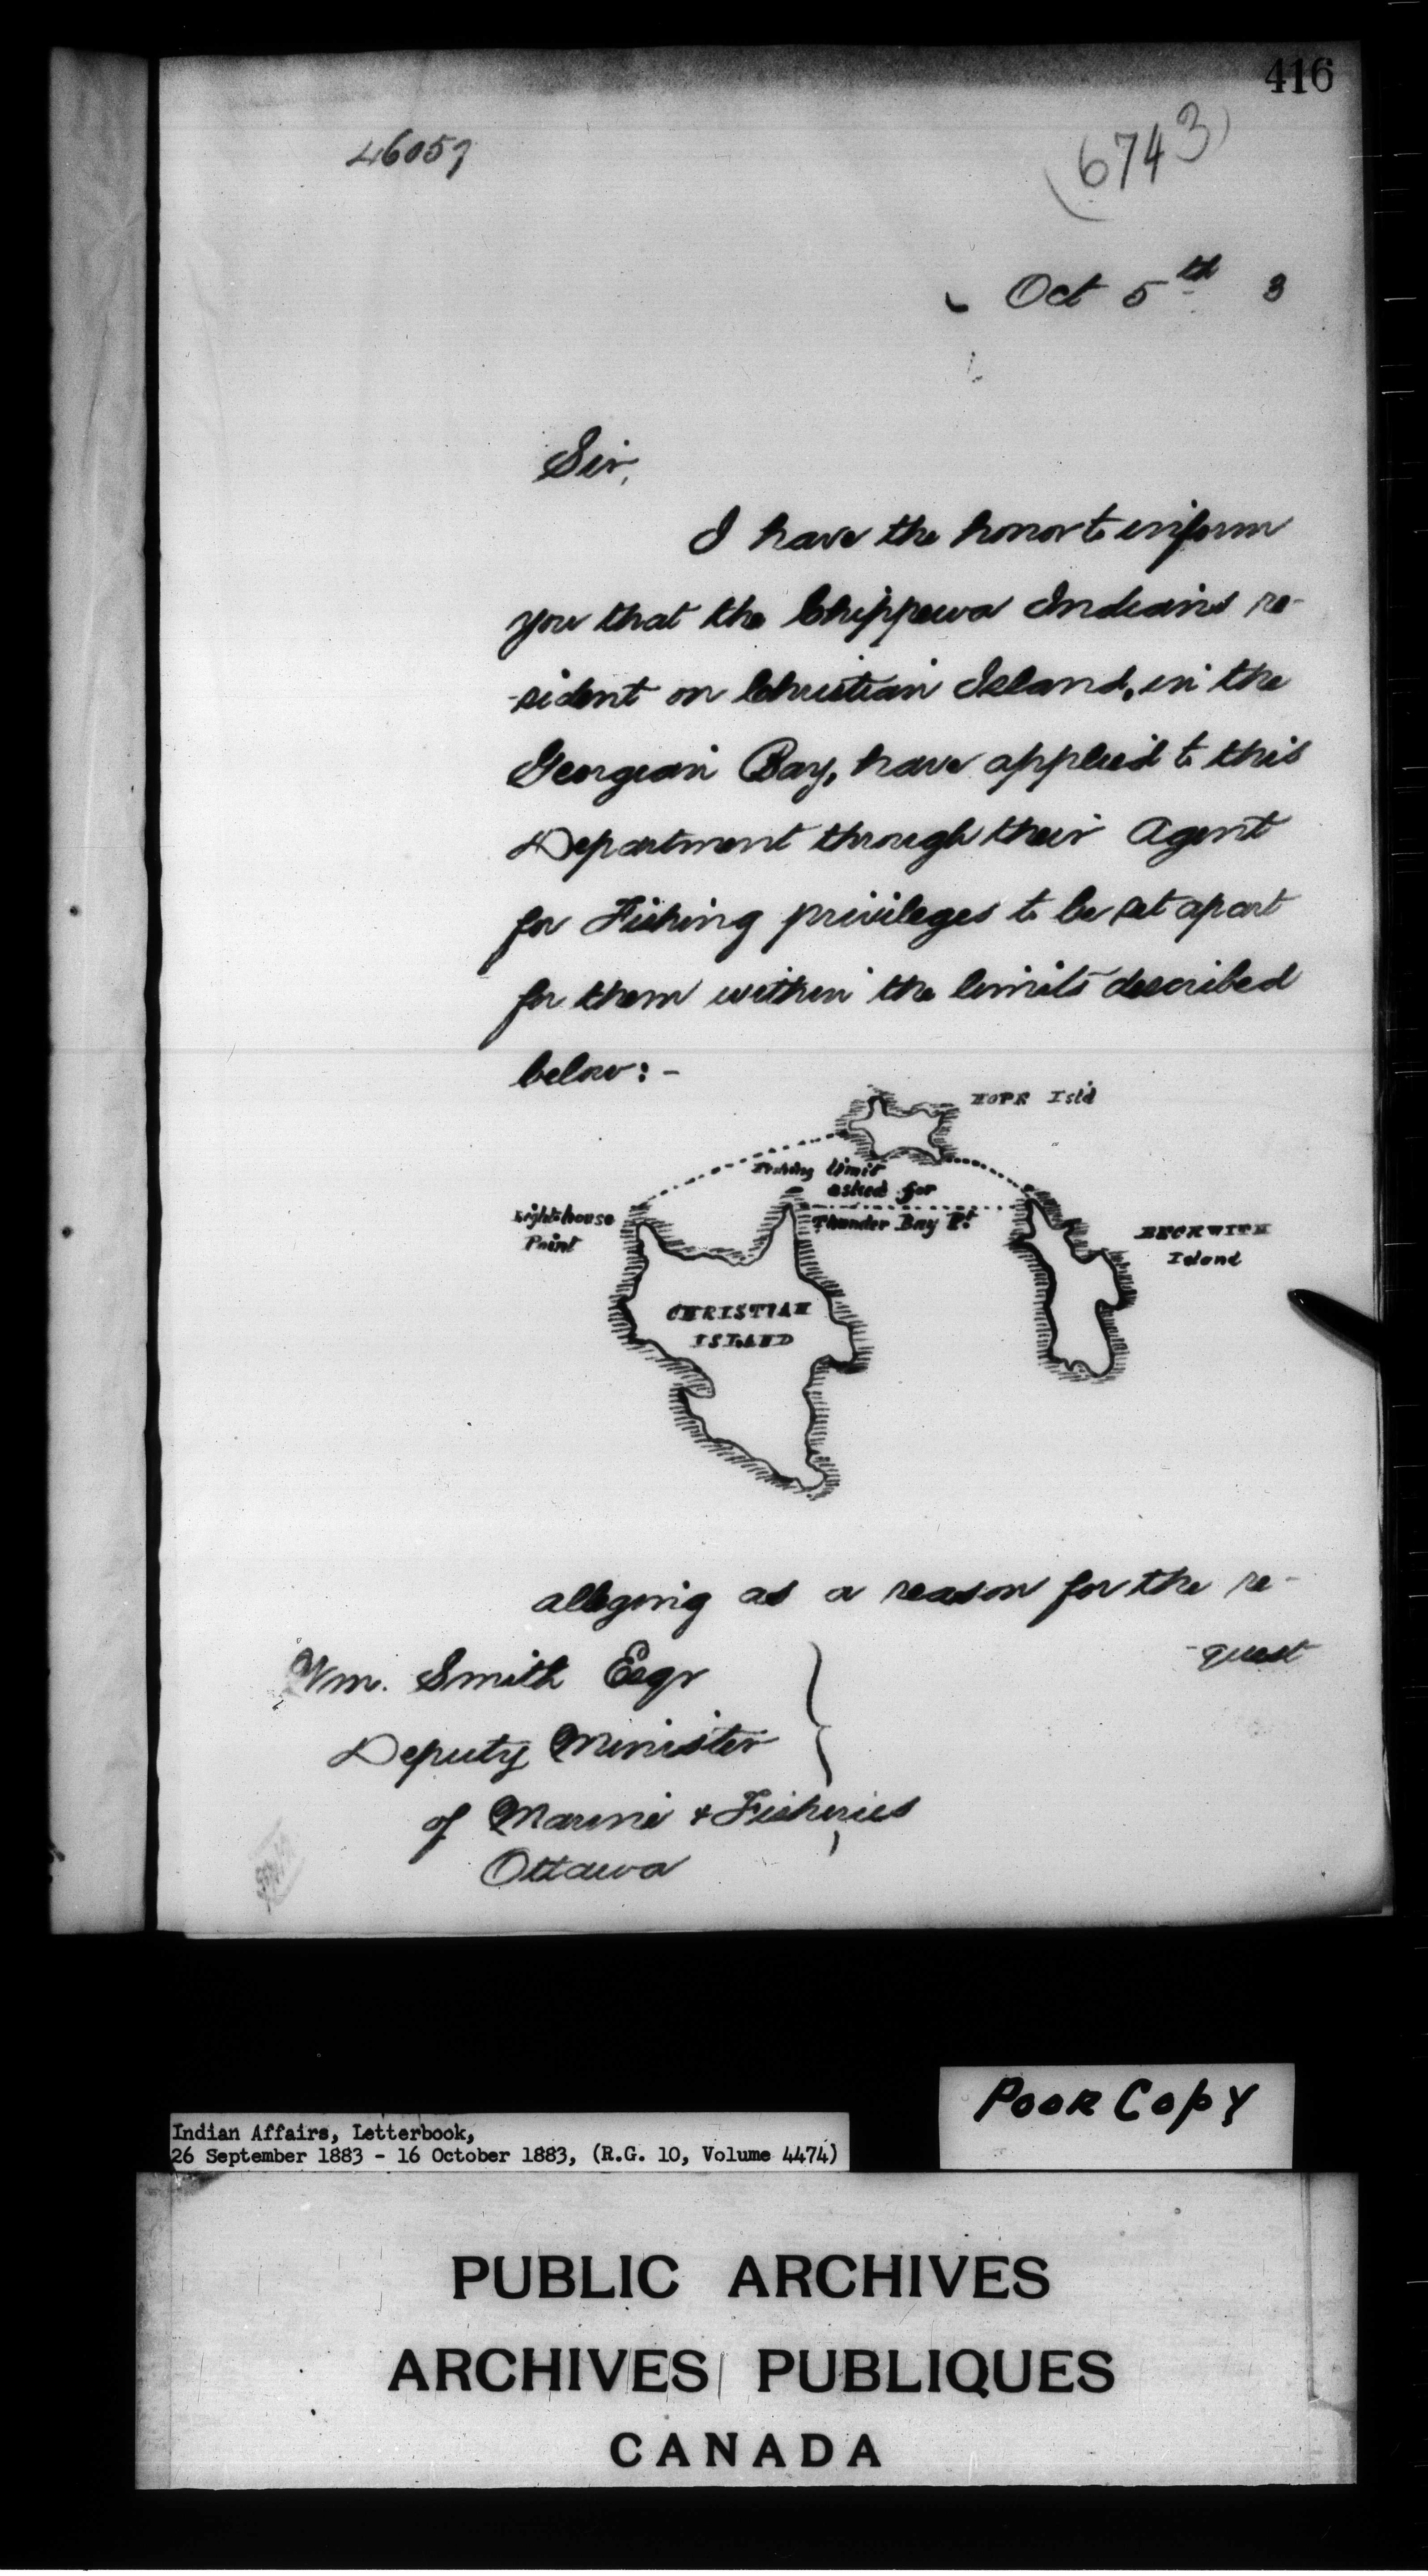 416
46057
(6743)
Oct 5th 3
Sir,
I have the honor to inform
you that the Chippewa Indians re-
-sident on Christian Island, in the
Georgian Bay, have applied to this
Department through their Agent
for Fishing privileges to be set apart
for them within the limits described
below:-
HOPE Isl'd
Fishing limit
asked for
Lighthouse
Point
Thunder Bay Pt.
BECKWITH
Island
CHRISTIAN
ISLAND
alleging as a reason for the re-
-quest
Wm. Smith Esqr
Deputy Minister
of Marine & Fisheries,
Ottawa
POOR COPY
Indian Affairs, Letterbook,
26 September 1883 - 16 October 1883, (R.G. 10, Volume 4474)
PUBLIC ARCHIVES
ARCHIVES PUBLIQUES
CANADA